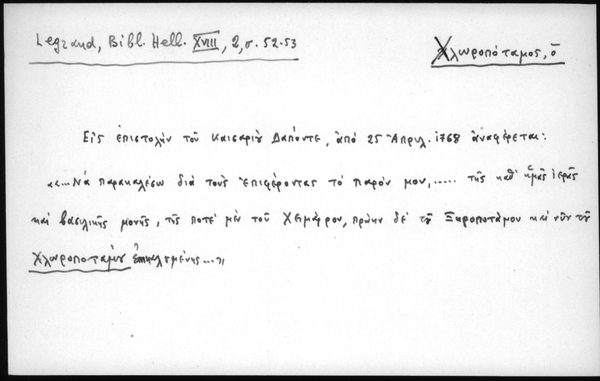 Legrand, Bibl. Hell. XVIII, 2, σ. 52-53
Χλωροπόταμος, ὁ
Εἰς ἐπιστολὴν τοῦ Καισαρίου Δαπόντε, ἀπὸ 25 Ἀπριλ. 1768 ἀναφέρεται:
«... Νὰ παρακαλέσω διὰ τοὺς ἐπιφέροντας τὸ παρόν μου, ..... τῆς καθ' ἡμᾶς ἱερᾶς
καὶ βασιλικῆς μονῆς, τῆς ποτὲ μὲν τοῦ Χειμάρρου, πρώην δὲ τοῦ Ξηροποτάμου καὶ νῦν τοῦ
Χλωροποτάμου ἐπικαλουμένης...»